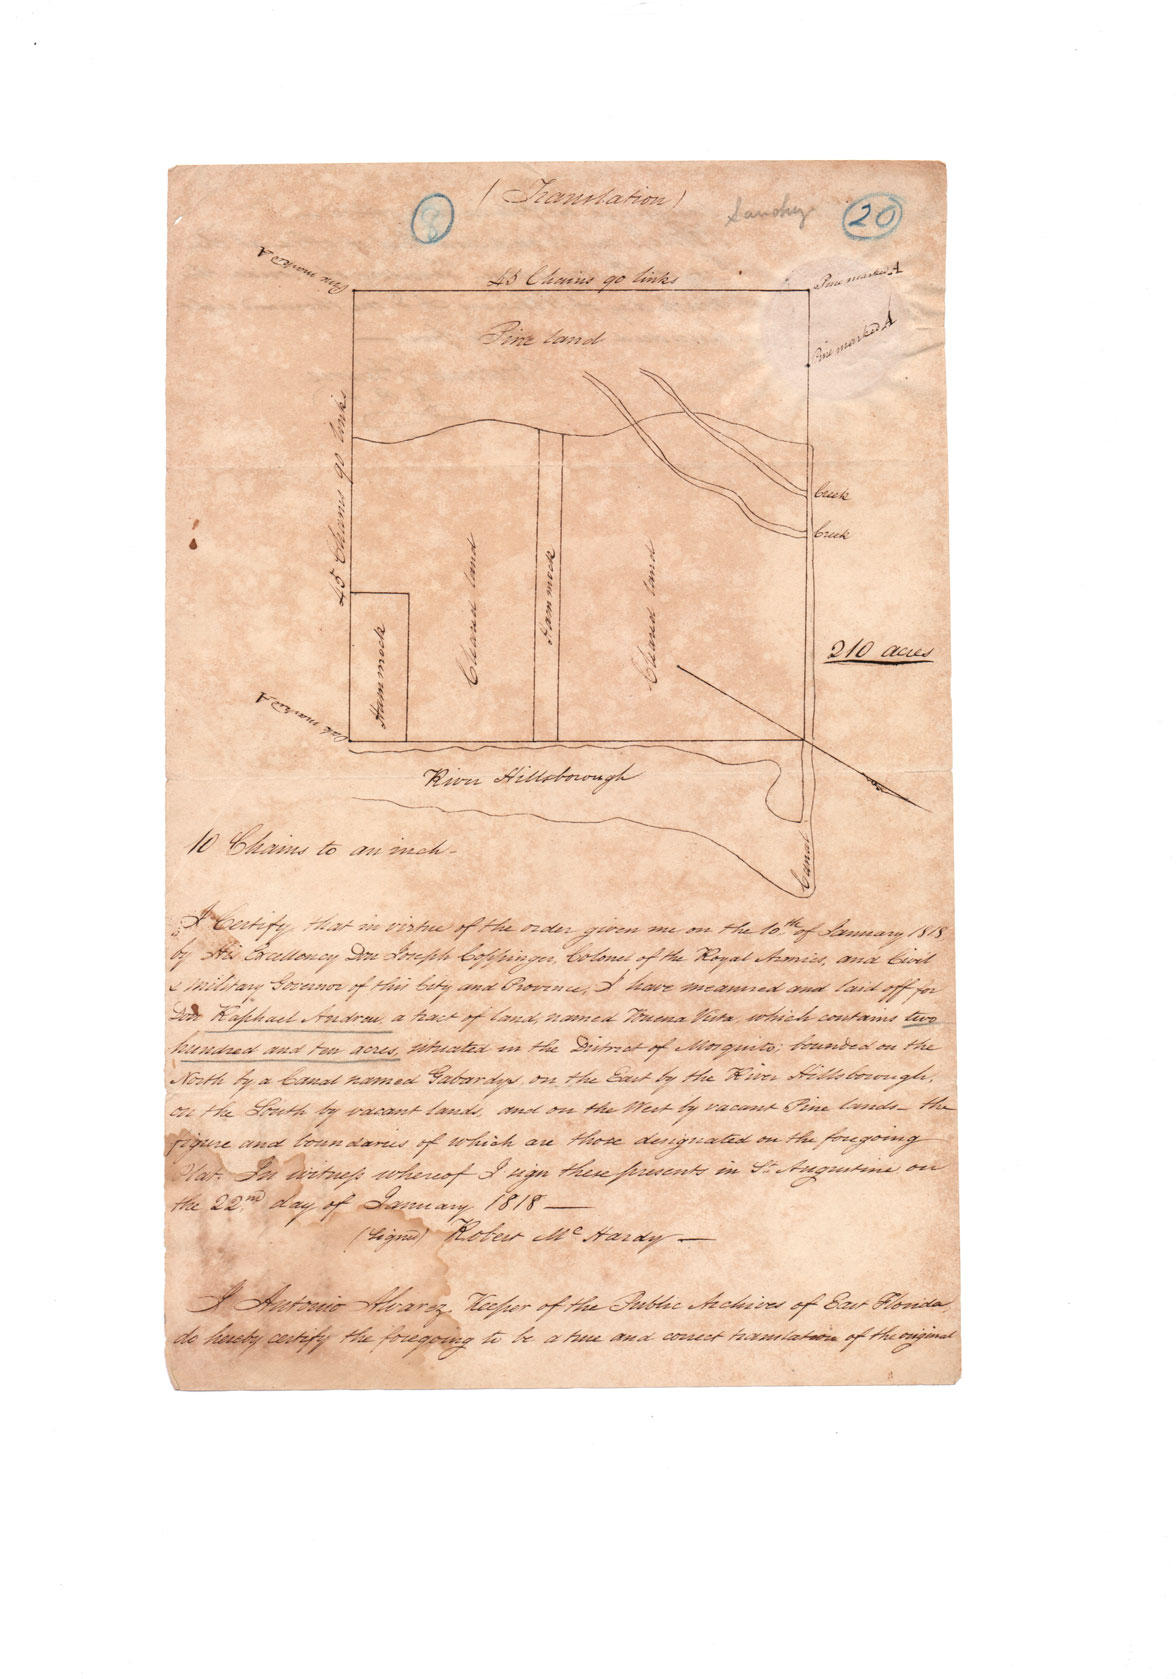 (Translation)
8
Sanchez
20
45 Chains 90 links
Pine marked A
Pine marked A
Pine marked A
Pine land
45 Chains 90 links
Creek
Creek
Cleared land
Hammock
Cleared land
Hammock
210 acres
Oak marked A
River Hillsborough
Canal
10 Chains to an inch-
I Certify that in virtue of the order given me on the 10th of January 1818
by His Excellency Don Joseph Coppinger, Colonel of the Royal Armies, and Civil
& Military Governor of this City and Province, I have measured and laid off for
Don Raphael Andreu, a tract of land, named Buena Vista, which contains two
hundred and ten acres, situated in the District of Mosquito; bounded on the
North by a Canal named Gabardys, on the East by the River Hillsborough,
on the South by vacant lands, and on the West by vacant Pine lands - the
figure and boundaries of which are those designated on the foregoing
Plat. In witness whereof I sign these presents in St. Augustine, on
the 22nd day of January 1818 —
(Signed) Robert Mc Hardy —
I Antonio Alvarez, Keeper of the Public Archives of East Florida,
do hereby certify the foregoing to be a true and correct translation of the original